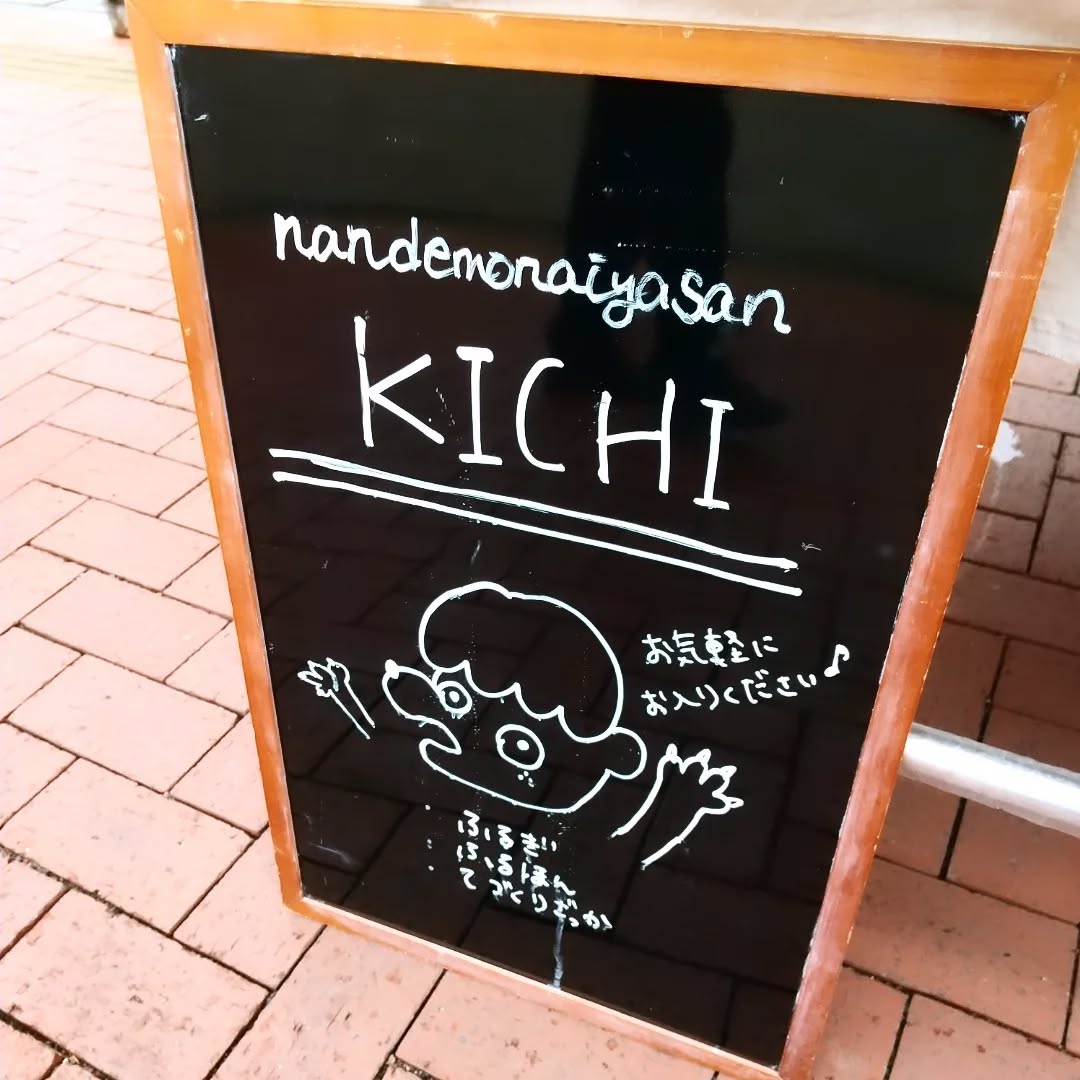 nandemonaiyasan
KICHI
お気軽に
お入りください♪
・ふるぎ
・ふるほん
・てづくりざっか